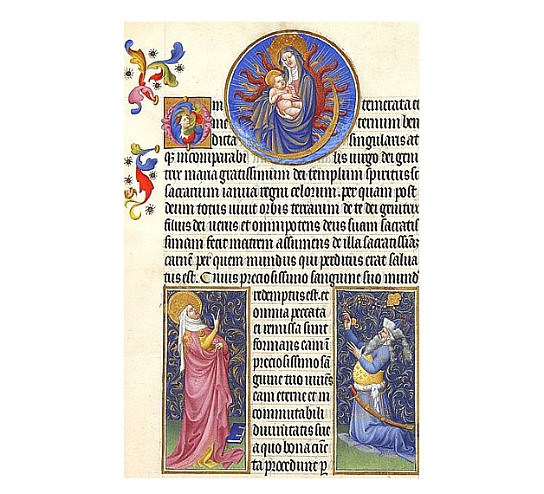 O in temerata et
in e ternum ben
dicta singularis at
q; incomparabi lis uirgo dei geni
trix maria gratissimum dei templum spiritus sc
sacrarium ianua regni celorum. per quam post
deum totus uiuit orbis terrarum de te dei genitrix
filius dei uerus et omnipotens deus suam sacratis
simam fecit matrem assumens de illa sacratissiãz
carnẽ per quem mundus qui perditus erat salua
tus est. Cuius preciosissimo sanguine suo mund
redemptus est. et
omnia peccata
ei remissa sunt
formans eam ĩ
preciosissimo sã
guine tuo
eam eterne et in
commutabili
diuinitatis sue
a quo bona cũc
ta procedunt p